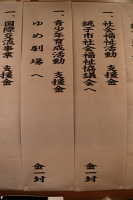 一、社会福祉活動 支援金
銚子市社会福祉協議会へ
金一封
一、青少年育成活動 支援金
ゆめ劇場へ
金一封
一、国際交流事業 支援金